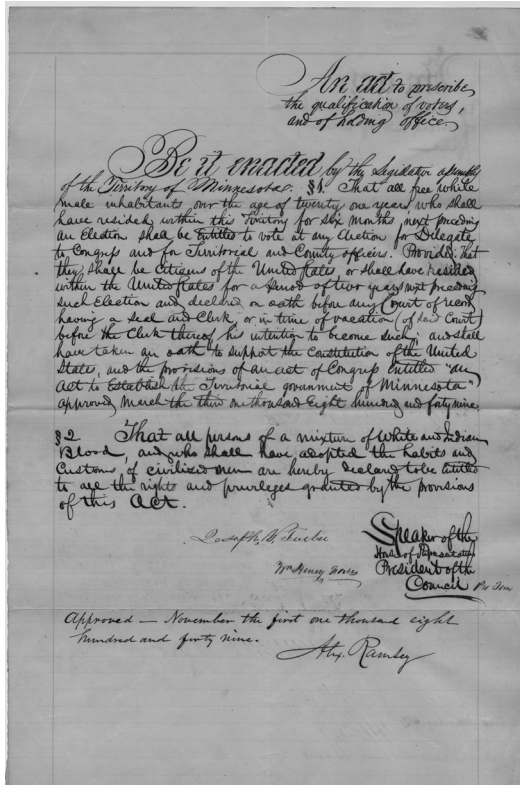 An act to prescribe
the qualification of voters,
and of holding office.
Be it enacted by the Legislative assembly
of the Territory of Minnesota: §1. That all free white
male inhabitants over the age of twenty one years who shall
have resided within this Territory for six months next preceding
an Election shall be Entitled to vote at any Election for Delegate
to Congress and for Territorial and County officers. Provided: that
they shall be Citizens of the United States, or shall have resided
within the United States for a period of two years next preceding
such Election and declared on oath before any Court of record
having a seal and Clerk, or in time of vacation (of said Court)
before the Clerk thereof his intention to become such; and shall
have taken an oath to support the Constitution of the United
States, and the provisions of an act of Congress Entitled "an
Act to Establish the Territorial government of Minnesota"
approved March the third one thousand Eight hundred and forty nine.
§2 That all persons of a mixture of White and Indian
Blood, and who shall have adopted the habits and
Customs of civilized men are hereby declared to be Entitled
to all the rights and privileges granted by the provisions
of this Act.
Joseph W. Furber
Speaker of the
House of Representatives
Wm Henry Forbes
President of the
Council Pro Tem
Approved — November the first one thousand eight
hundred and forty nine.
Alex. Ramsey